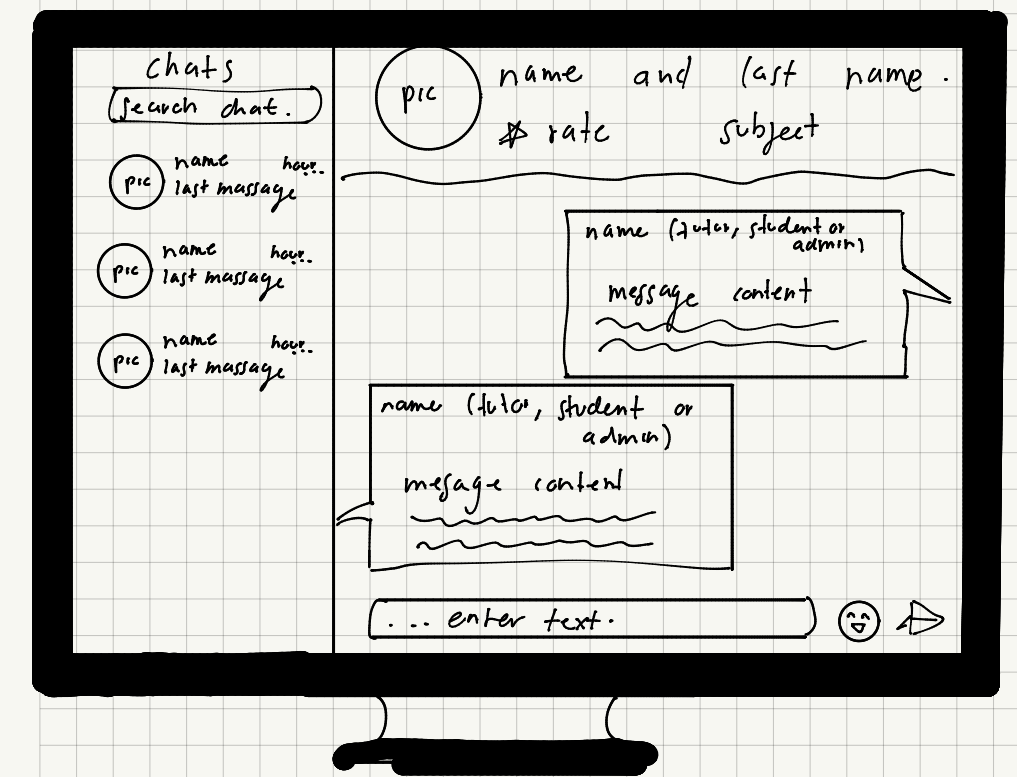 chats
search chat.
pic
name hour...
last massage
pic
name hour...
last massage
pic
name hour...
last massage
pic
name and last name.
rate subject
name (tutor, student or
admin)
message content
name (tutor, student or
admin)
mesage content
... enter text.